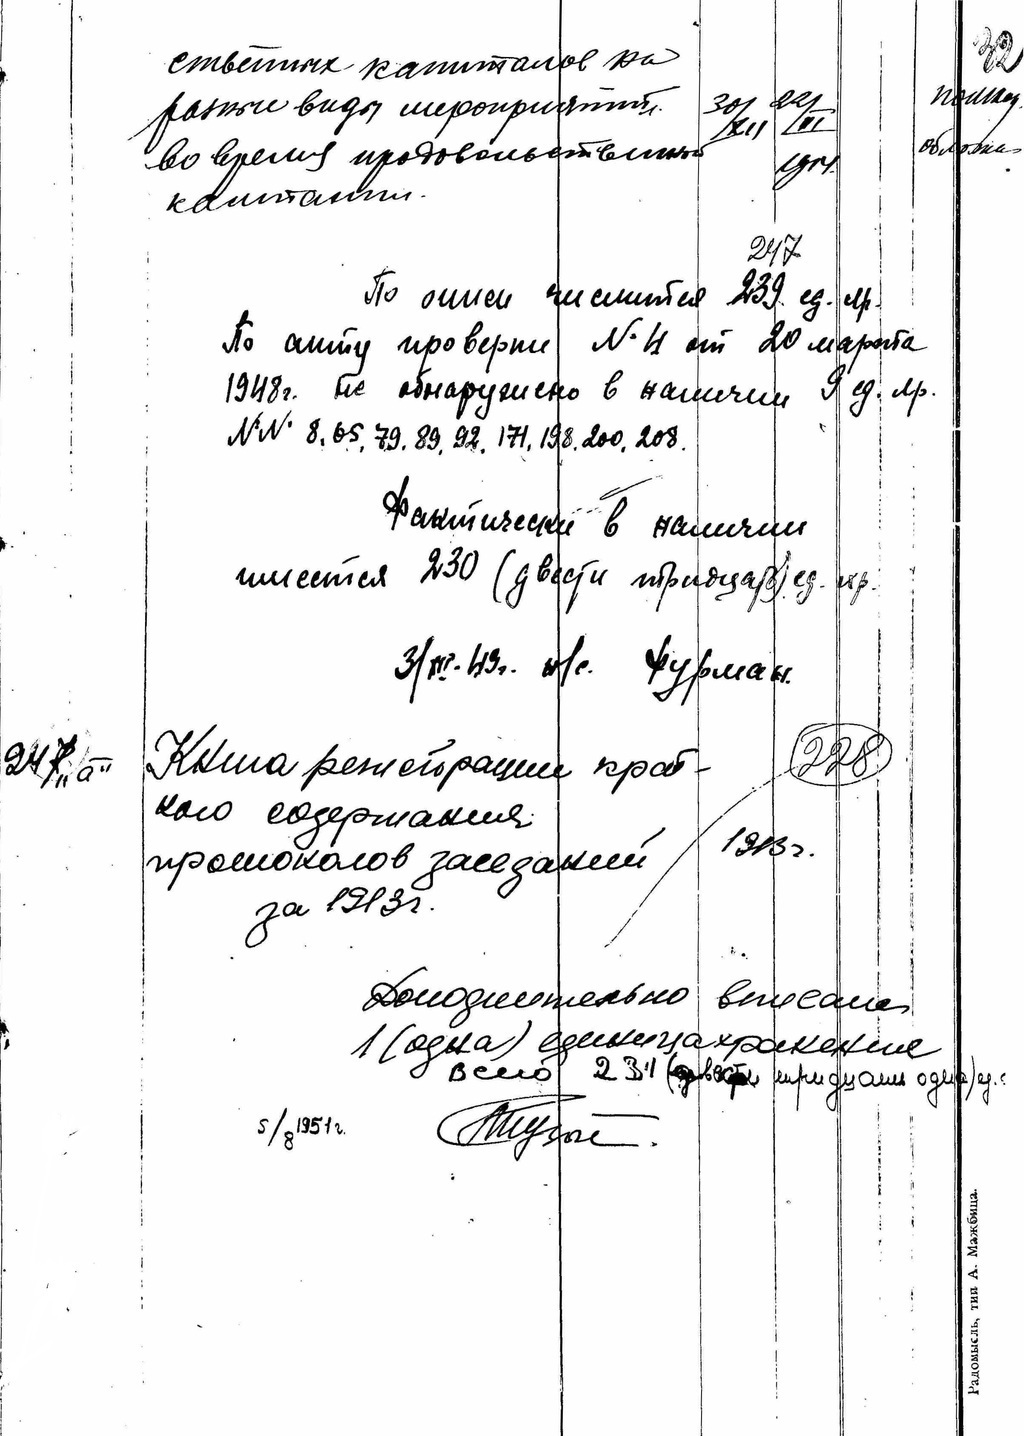 32
ственных капиталов на
разные виды мероприятий 30/XII 22/III повреж.
во время продовольственной 1914 обложка
кампании.
247
По описи числится 239 ед. хр.
По акту проверки № 4 от 20 марта
1948г. не обнаружено в наличии 9 ед. хр.
№№ 8, 65, 79, 89, 92, 171, 198, 200, 208.
Фактически в наличии
имеется 230 (двести тридцать) ед. хр.
3/III-49г. н/с. Фурман.
247 "а" Книга регистрации крат- 228
кого содержания
протоколов заседаний 1913г.
за 1913г.
Дополнительно вписана
1 (одна) единица хранения
всего 231 (двести тридцать одна) ед.
5/8 1951г.
Радомысль, тип А. Мажбица.